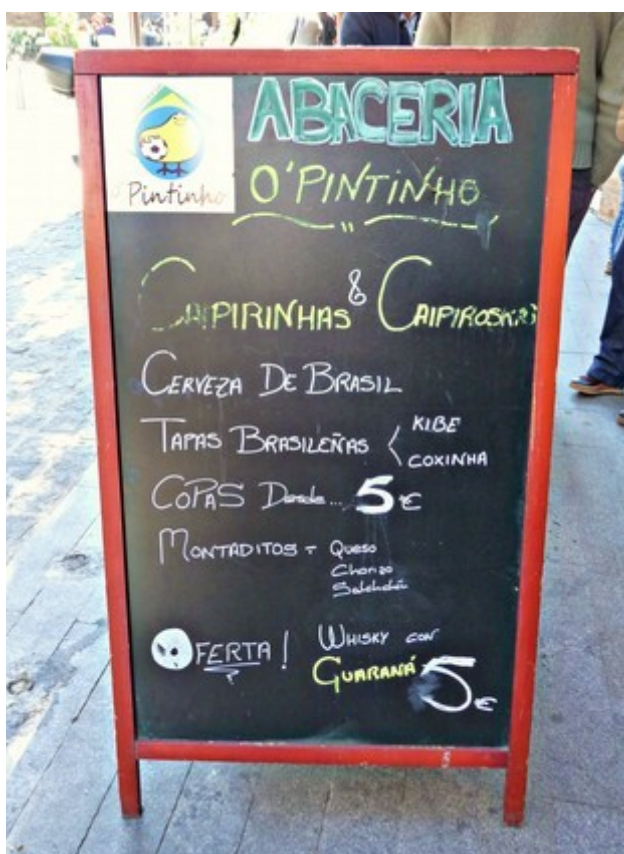 ABACERIA
O' Pintinho
O'PINTINHO
CAIPIRINHAS & CAIPIROSKAS
CERVEZA DE BRASIL
TAPAS BRASILEÑAS < KIBE
COXINHA
COPAS Desde... 5 €
MONTADITOS - Queso
Chorizo
Salchichón
OFERTA! WHISKY CON
GUARANÁ 5 €